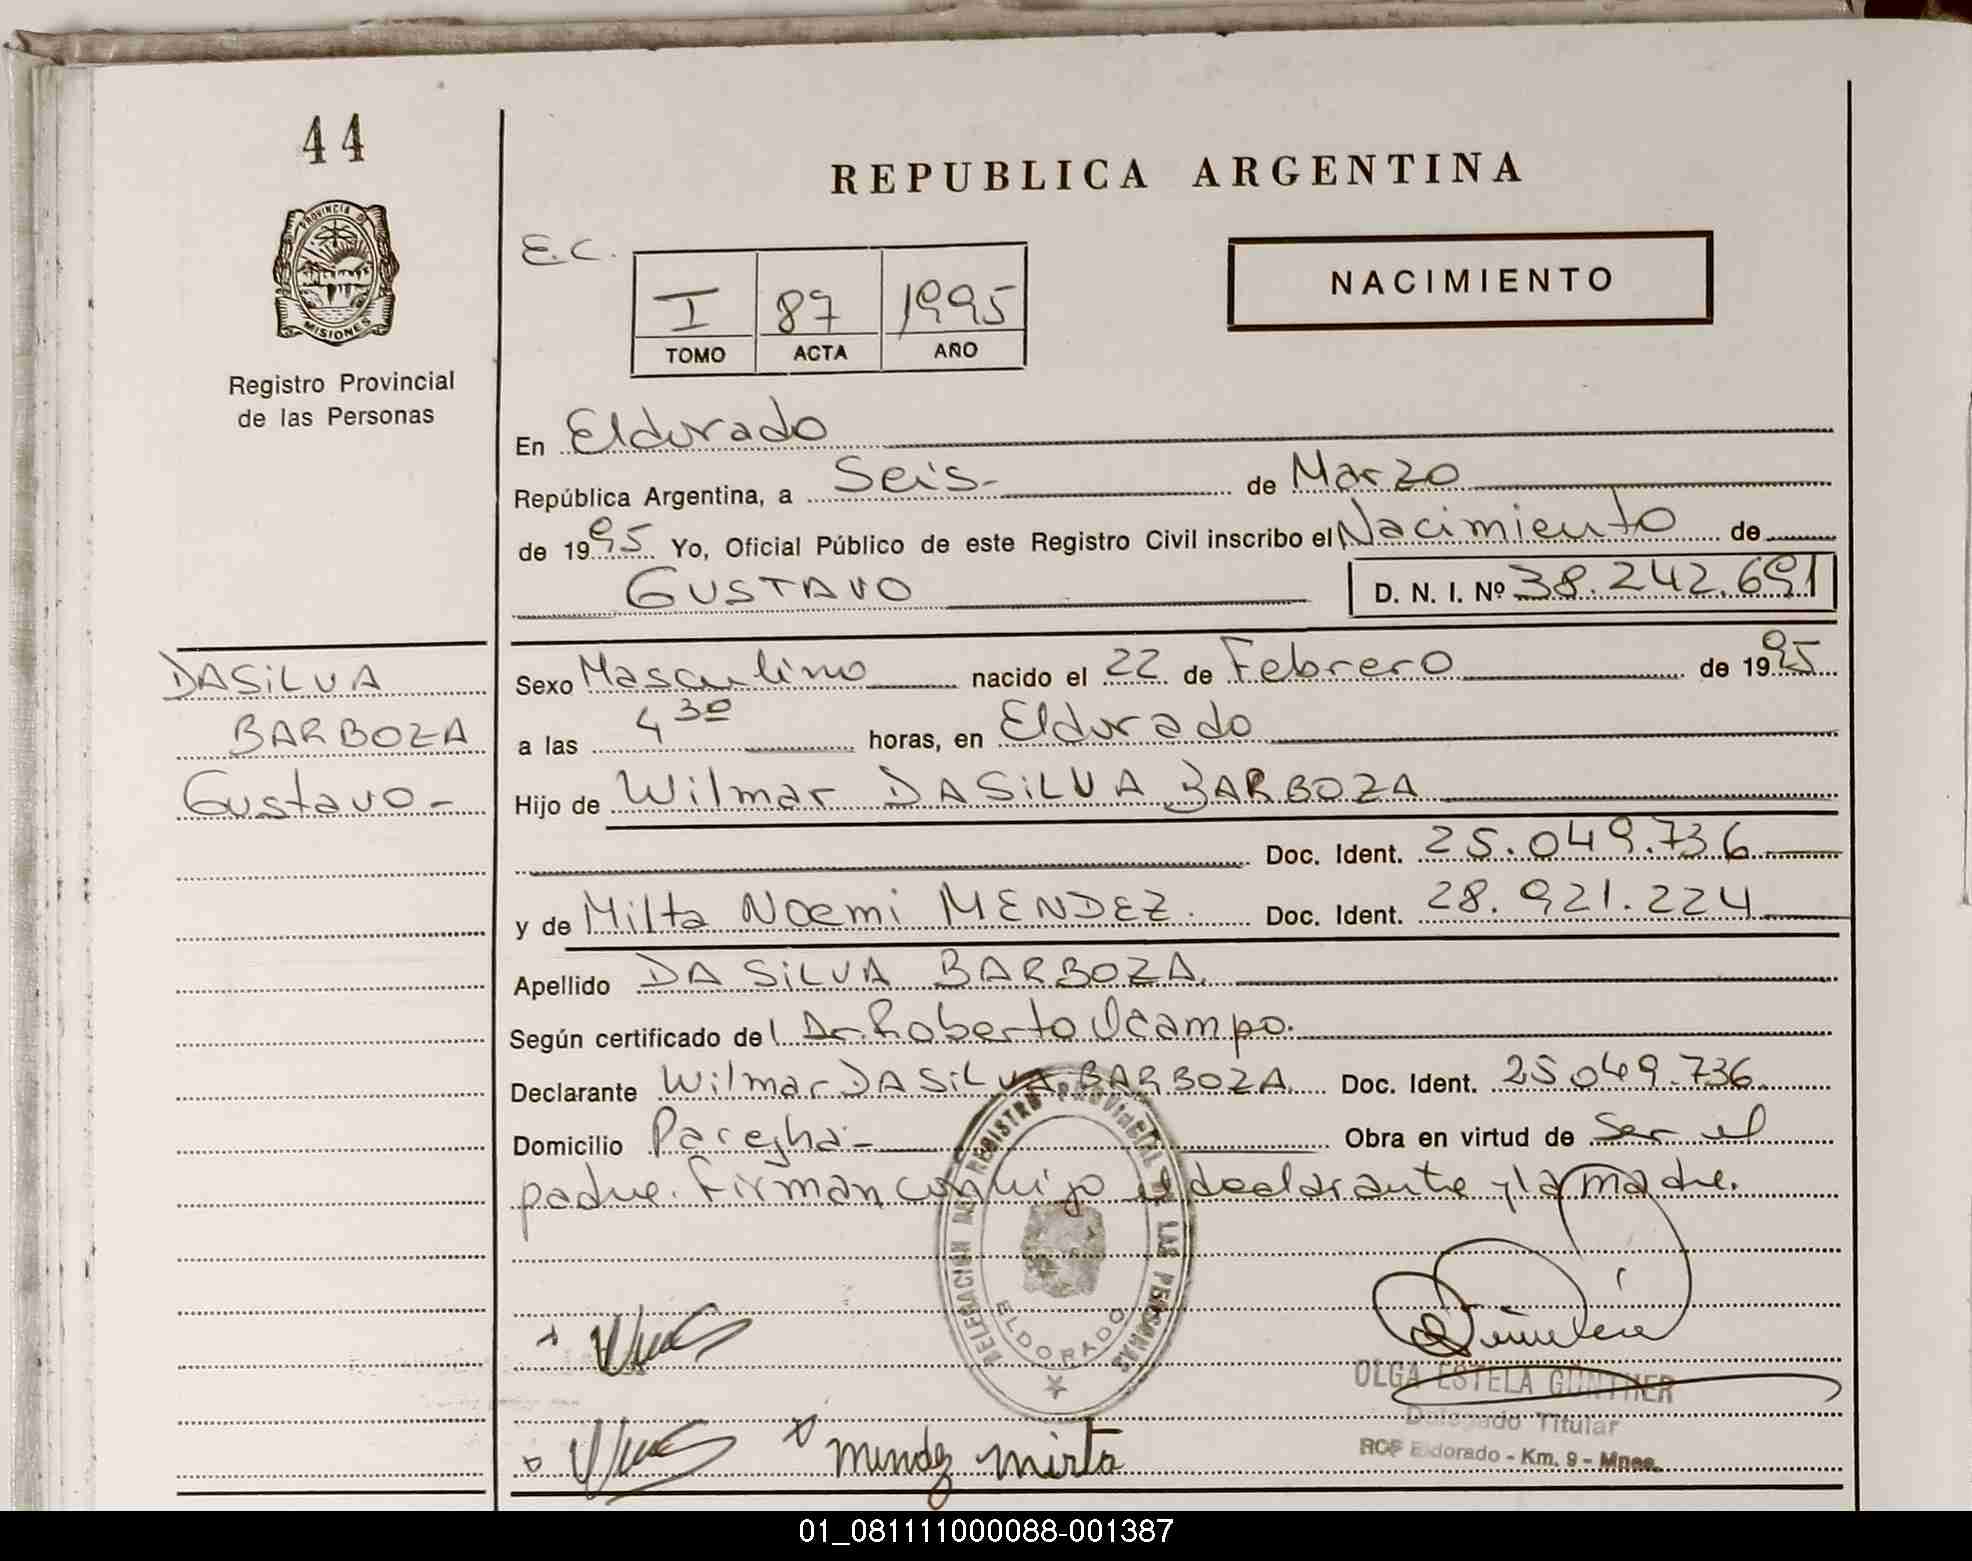 44
PROVINCIA DE
MISIONES
Registro Provincial
de las Personas
REPUBLICA ARGENTINA
E.C.
I 87 1995
TOMO ACTA AÑO
NACIMIENTO
En Eldorado
República Argentina, a Seis- de Marzo
de 1995 Yo, Oficial Público de este Registro Civil inscribo el Nacimiento de
GUSTAVO D. N. I. Nº 38.242.691
DASILVA
BARBOZA
Gustavo-
Sexo Masculino nacido el 22 de Febrero de 1995
a las 4 30 horas, en Eldorado
Hijo de Wilmar DASILVA BARBOZA
Doc. Ident. 25.049.736
y de Milta Noemi MENDEZ. Doc. Ident. 28.921.224
Apellido DA SILVA BARBOZA.
Según certificado del Dr. Roberto Ocampo.
Declarante Wilmar DA SILVA BARBOZA Doc. Ident. 25.049.736
Domicilio Parejha- Obra en virtud de Ser el
padre. Firman conmigo el declarante y la madre.
DELEGACION DEL REGISTRO PROVINCIAL DE LAS PERSONAS
ELDORADO
OLGA ESTELA GUNTHER
Delegado Titular
RCP Eldorado - Km. 9 - Mnes.
mendez mirta
01_081111000088-001387